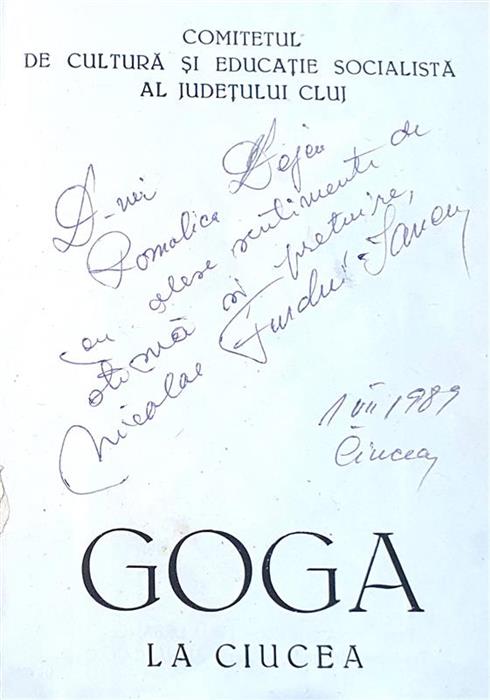 COMITETUL
DE CULTURĂ ȘI EDUCAȚIE SOCIALISTĂ
AL JUDEȚULUI CLUJ
D-nei Dejeu
Romalica
cu alese sentimente de
stimă și prețuire,
Nicolae Furdui Iancu
1 VII 1989
Ciucea
GOGA
LA CIUCEA